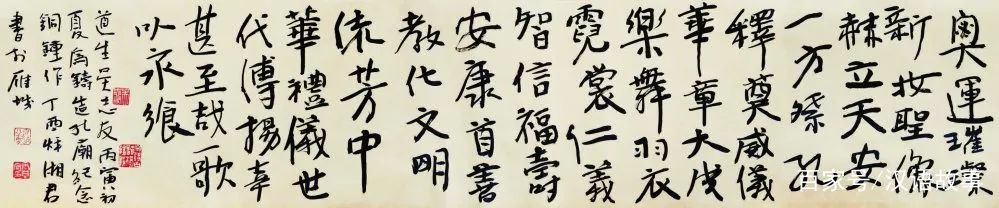 奧運璀璨
新妝聖像
赫立天安
一方祭孔
釋奠威儀
華章大成
樂舞羽衣
霓裳仁義
智信福壽
安康首善
教化文明
流芳中
華禮儀世
代傳揚幸
甚至哉歌
以永
道生吴志友丙寅初
夏為鑄造孔廟紀念
銅鐘作丁酉秋湘君
書於雁城
百家号/汉语故事